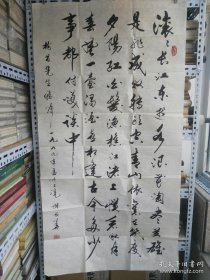 滚滚长江东逝水浪花淘尽英雄
是非成败转头空青山依旧在几度
夕阳红白发渔樵江渚上惯看秋月
春风一壶浊酒喜相逢古今多少
事都付笑谈中